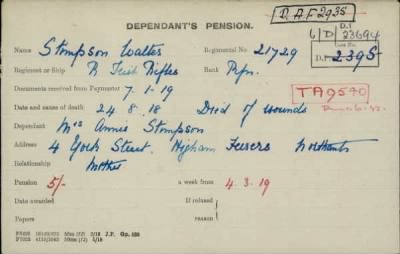 D.A.F 2935
DEPENDANT'S PENSION.
6/D D.I 23694
Case No.
Name Stimpson Walter Regimental No 21729 D.P. 2395
Regiment or Ship R Irish Rifles Rank Rfn.
Documents received from Paymaster 7-1-19
TA9570
Date and cause of death 24.8.18 Died of wounds
Dependant Mrs Annie Stimpson
Address 4 York Street. Higham Ferrers Northants
Relationship Mother
Pension 5/- a week from 4.3.19
Date awarded If refused
Papers reason